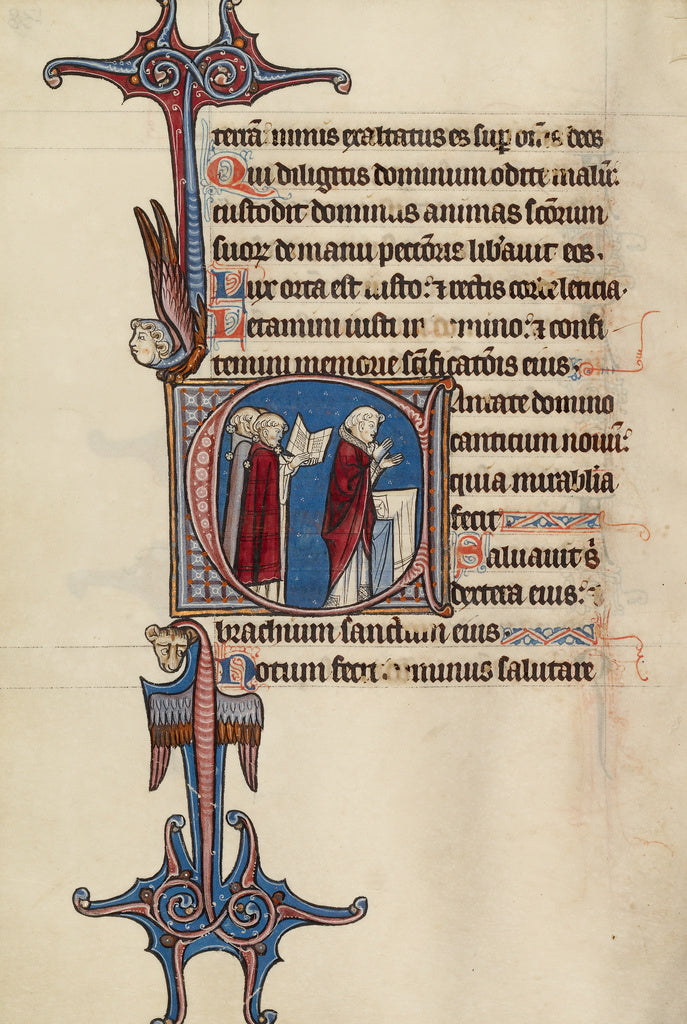 terrā nimis exaltatus es sup om̄s deos
Qui diligitis dominum odite malū:
custodit dominus animas scōrum
suoꝝ de manu peccōris lib̄auit eos.
Lux orta est iusto: ⁊ rectis corde leticia.
Letamini iusti in domino: ⁊ confi
temini memorie scīficatōis eius.
Cantate domino
canticum nouū:
quia mirabilia
fecit
Saluauit s̄
dextera eius:
brachium sanctum eius
Notum fecit dominus salutare